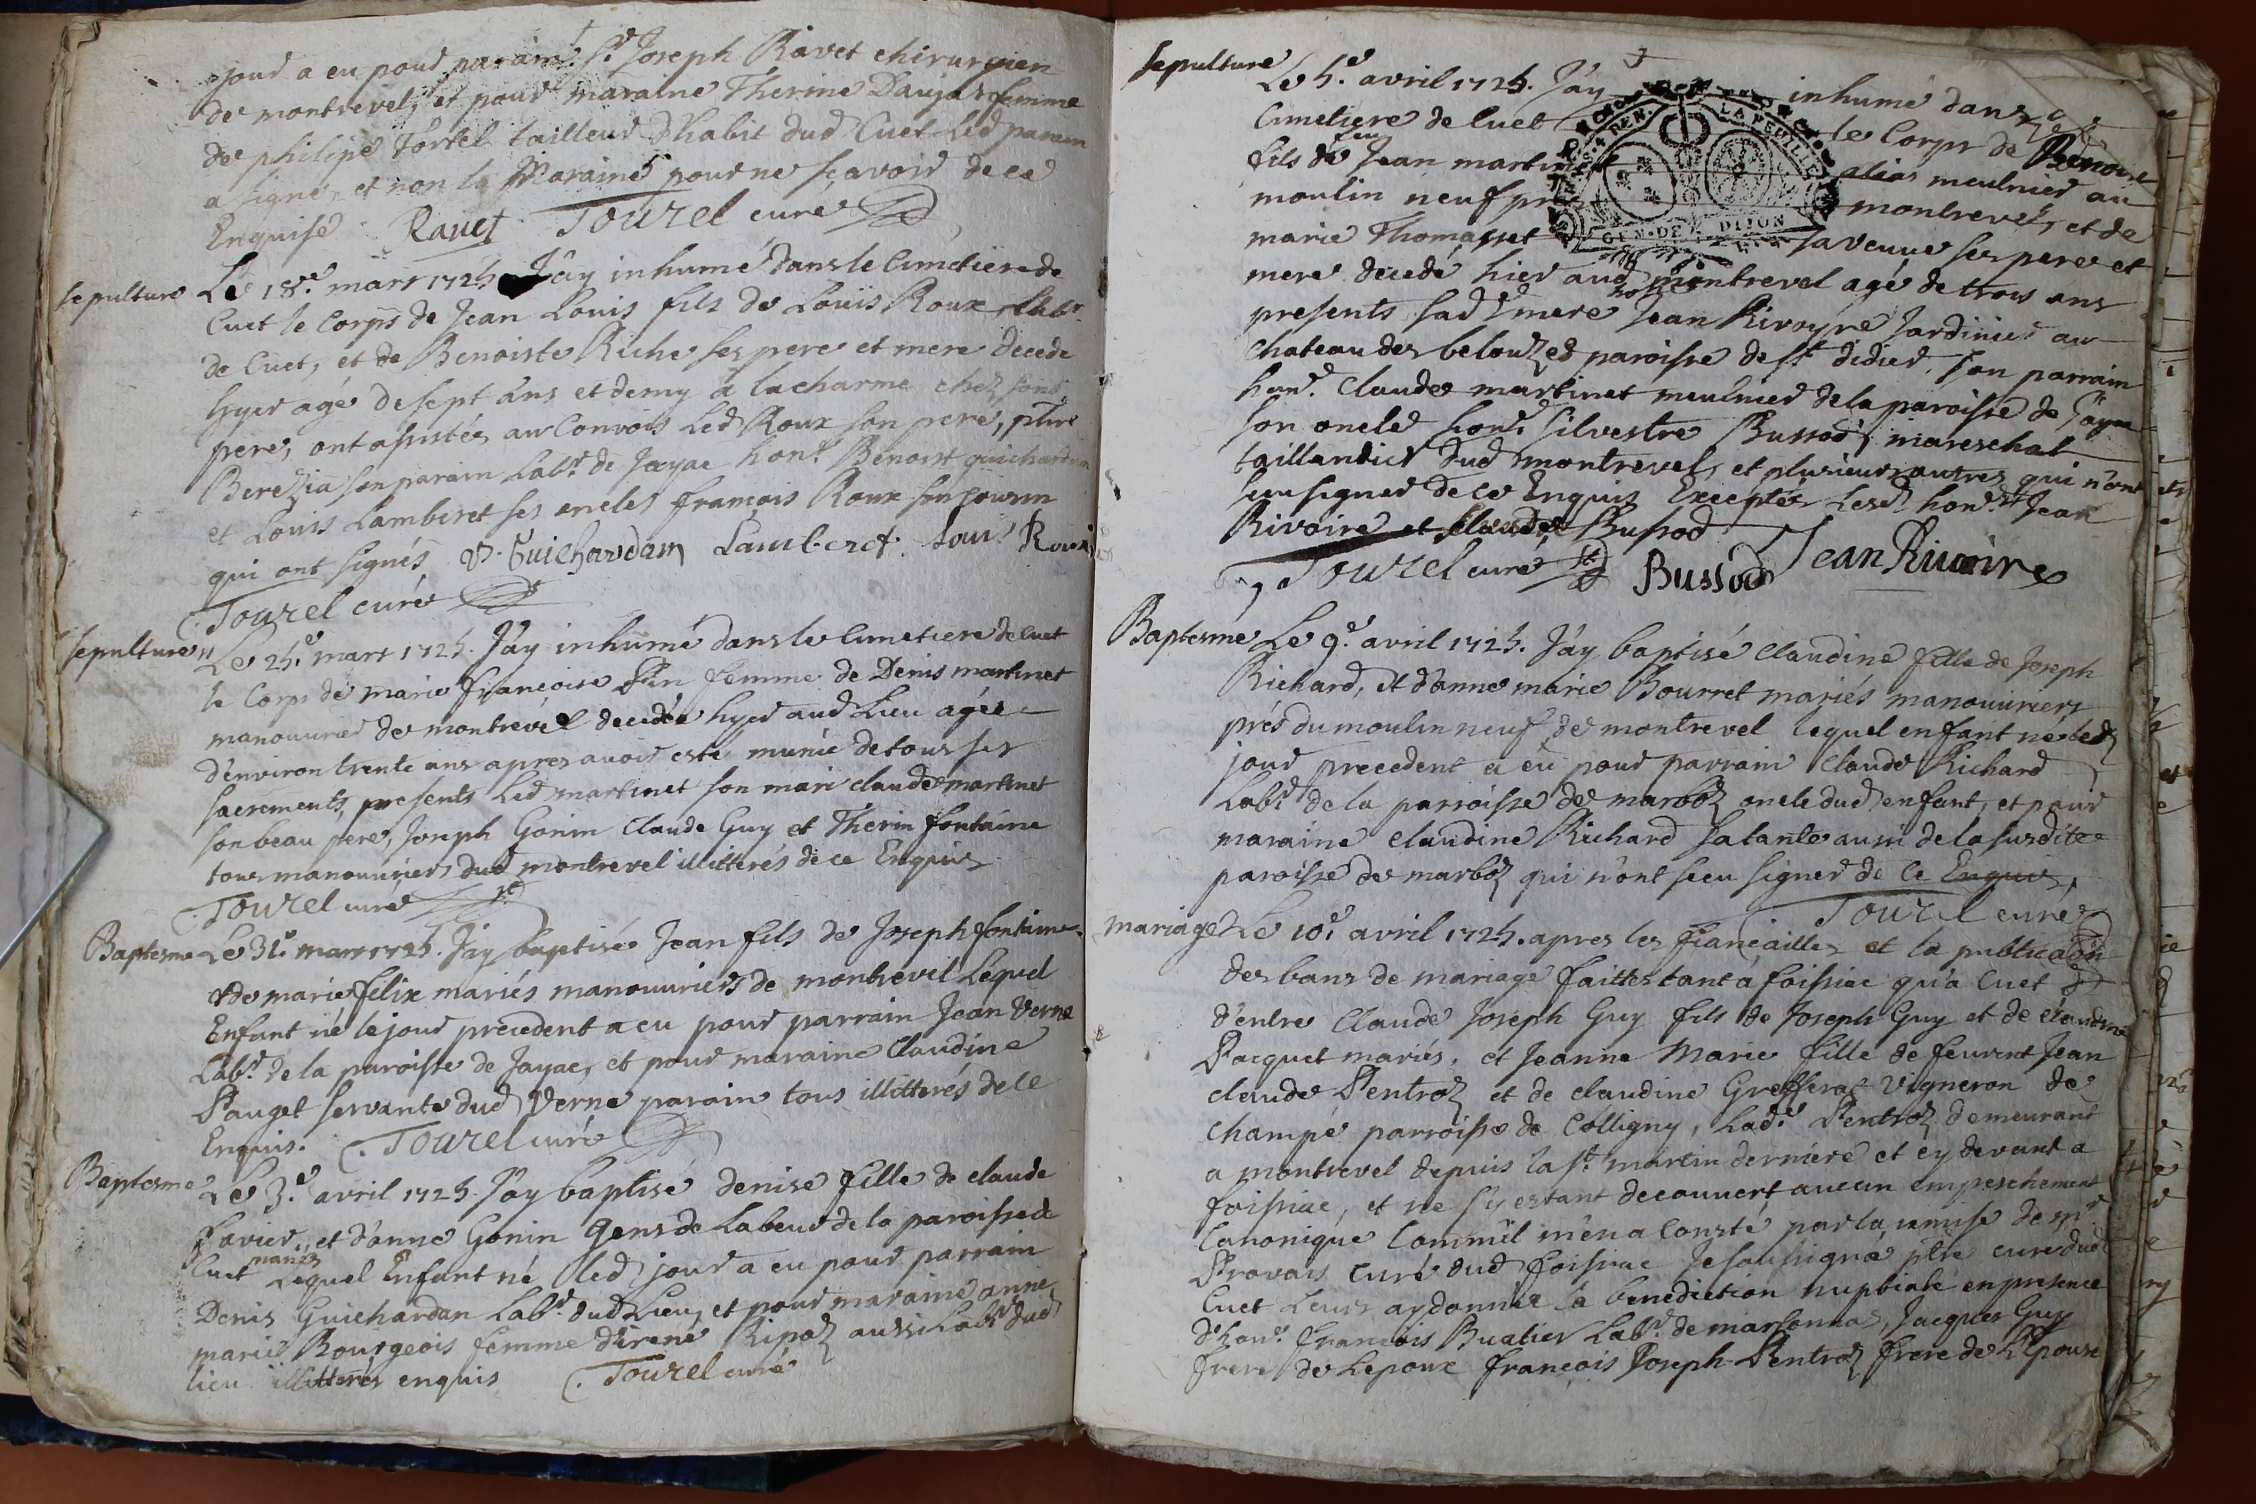 jour a eu pour parain Sr. Joseph Ravet chirurgien
de montrevel, et pour maraine Therine Daujat femme
de philipe Tortel tailleur d'habit dud Cuet led parain
a signé, et non la Maraine pour ne sçavoir de ce
Enquise Ravet Tourel curé
sepulture Le 18e. mars 1725 J'ay inhumé dans le Cimetiere de
Cuet le Corps de Jean Louis fils de Louis Roux Labr.
de Cuet, et de Benoiste Riche ses pere et mere decede
hyer agé de sept ans et demy a la charme chez sond
pere, ont assistés au Convois Led Roux son pere,
Berezia son parain Labr. de Jayac hont. Benoist guichardan
et Louis Lamberet ses oncles françois Roux son cousin
qui ont signés B. Guichardan Lamberet. Louis Roux
Tourel curé
sepulture Le 25e. mars 1725. J'ay inhumé dans le Cimetiere de Cuet
le Corps de marie françoise femme de Denis martinet
manouurier de montrevel decedée hyer aud Lieu agée
d'environ trente ans apres avoir esté munie de tous ses
sacrements, presents Led martinet son mari claude martinet
son beau pere, Joseph Gonin Claude Guy et Therin fontaine
tous manouuriers dud montrevel illitterés de ce Enquis
Tourel curé
Baptesme Le 31e. mars 1725. J'ay baptisé Jean fils de Joseph fontaine
et de marie felix mariés manouuriers de montrevel Lequel
Enfant né le jour precedent a eu pour parrain Jean Verne
Labr. de la paroisse de Jayac, et pour maraine Claudine
Pauget servante dud Verne parain tous illitterés de ce
Enquis. Tourel curé
Baptesme Le 3e. avril 1725. J'ay baptisé denise fille de claude
favier, et d'anne Gonin gens de Labeur de la paroisse de
Cuet mariés Lequel Enfant né led jour a eu pour parrain
Denis Guichardan Labr. dud Lieu, et pour maraine anne
marie Bourgeois femme d'irené Ripoz aussi Labr dud
lieu illitterés enquis Tourel curé
sepulture Le 5e. avril 1725. J'ay inhumé dans le
Cimetiere de Cuet le Corps de Benoist
fils de feu Jean martinet alias meulnier au
moulin neuf montrevel, et de
marie Thomasset sa veuve ses pere et
mere decedé hier aud montrevel agé de trois ans
presents sad. mere Jean Rivoyre Jardinier au
chateau des belouzes paroisse de st didier, son parrain
hont. Claude martinet meulnier de la paroisse de
son oncle hont. silvestre Bussod, mareschal
taillandier dud montrevel, et plusieurs autres qui n'ont
sceu signer de ce Enquis Exceptés Lesd honts Jean
Rivoire et Bussod
Tourel curé Bussod Jean Rivoire
GEN. DE DIJON
Baptesme Le 9e. avril 1725. J'ay baptisé Claudine fille de Joseph
Richard, et d'anne marie Bourret mariés manouuriers
prés du moulin neuf de montrevel lequel enfant né led
jour precedent a eu pour parrain Claude Richard
Labr. de la parroisse de marboz oncle dud enfant, et pour
maraine Claudine Richard sa tante aussi de la susdite
paroisse de marboz qui n'ont sceu signer de Ce Enquis,
Tourel curé
mariage Le 10e. avril 1725. apres les fiançailles et la publication
des bans de mariage faittes tant à foissiac qu'a Cuet
d'entre Claude Joseph Guy fils de Joseph Guy et de claudine
Pacquet mariés, et Jeanne Marie fille de feu Jean
claude Pentroz et de claudine Grefferat vigneron de
Champé parroisse de Colligny, Lade. Pentroz demeurant
a montrevel depuis la st. martin derniere et cy devant a
foissiac, et ne s'y estant decouvert aucun empeschement
Canonique Comm'il m'en a Consté par la remise de mr
Provais Curé dud foissiac Je soussigné ptre curé dud
Cuet Leurs ay donnée la benediction nuptiale en presence
d'hont. françois Buatier Labr. de marsonnas, Jacques Guy
frere de Lepoux françois Joseph Pentroz frere de L'épouse